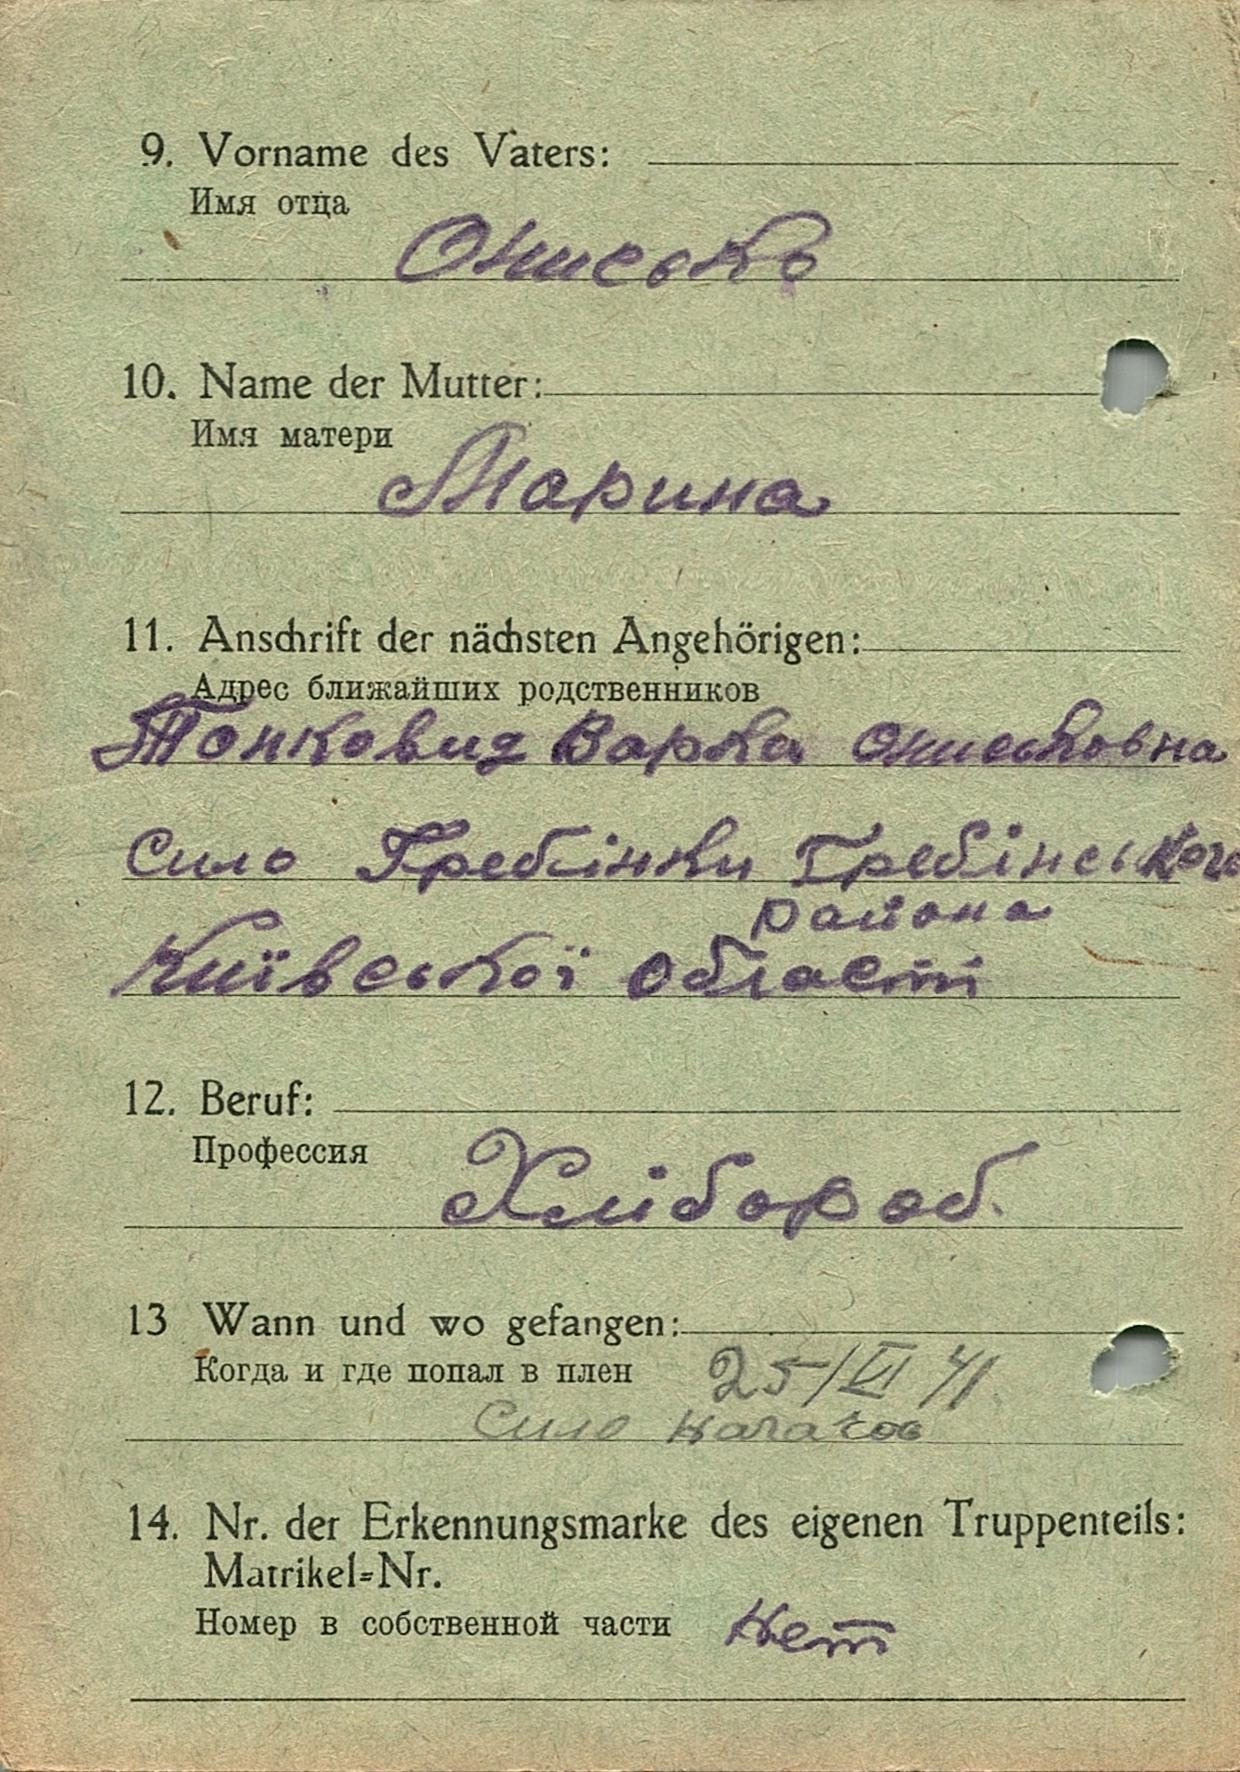 9. Vorname des Vaters:
Имя отца
Онисько
10. Name der Mutter:
Имя матери
Марина
11. Anschrift der nächsten Angehörigen:
Адрес ближайших родственников
Тонковид Варка Ониськовна
Сило Гребінки Гребінського
района
Київської області
12. Beruf:
Профессия
Хлібороб.
13 Wann und wo gefangen:
Когда и где попал в плен 25/VI 41
Сило
14. Nr. der Erkennungsmarke des eigenen Truppenteils:
Matrikel=Nr.
Номер в собственной части Нет